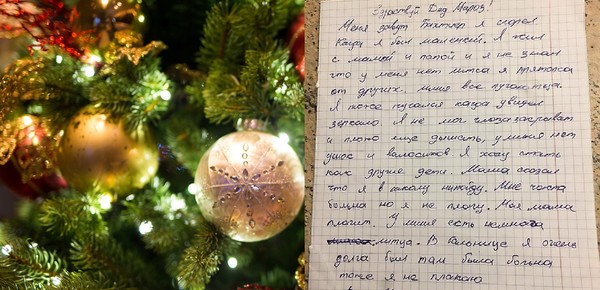 Здраствуй Дед Мароз!
Меня завут Бахтияр я сгорел
Кагда я был маленький. Я жил
с мамай и папой и я не знал
что у меня нет литса я прятолса
от других. миня все пугаютца.
Я тоже пугался кагда увидел
зеркало. Я не мог глаза закрывать
и плохо ище дышать, у миня нет
ушок и валоситов Я хачу стать
как другие дети. Мама сказал
что я в школу нипайду. Мне часта
больна но я не плачу. Моя мама
плачит. У миня есть немнога
литца. В больнице я очень
долга был там была больна
тоже я не плакаю